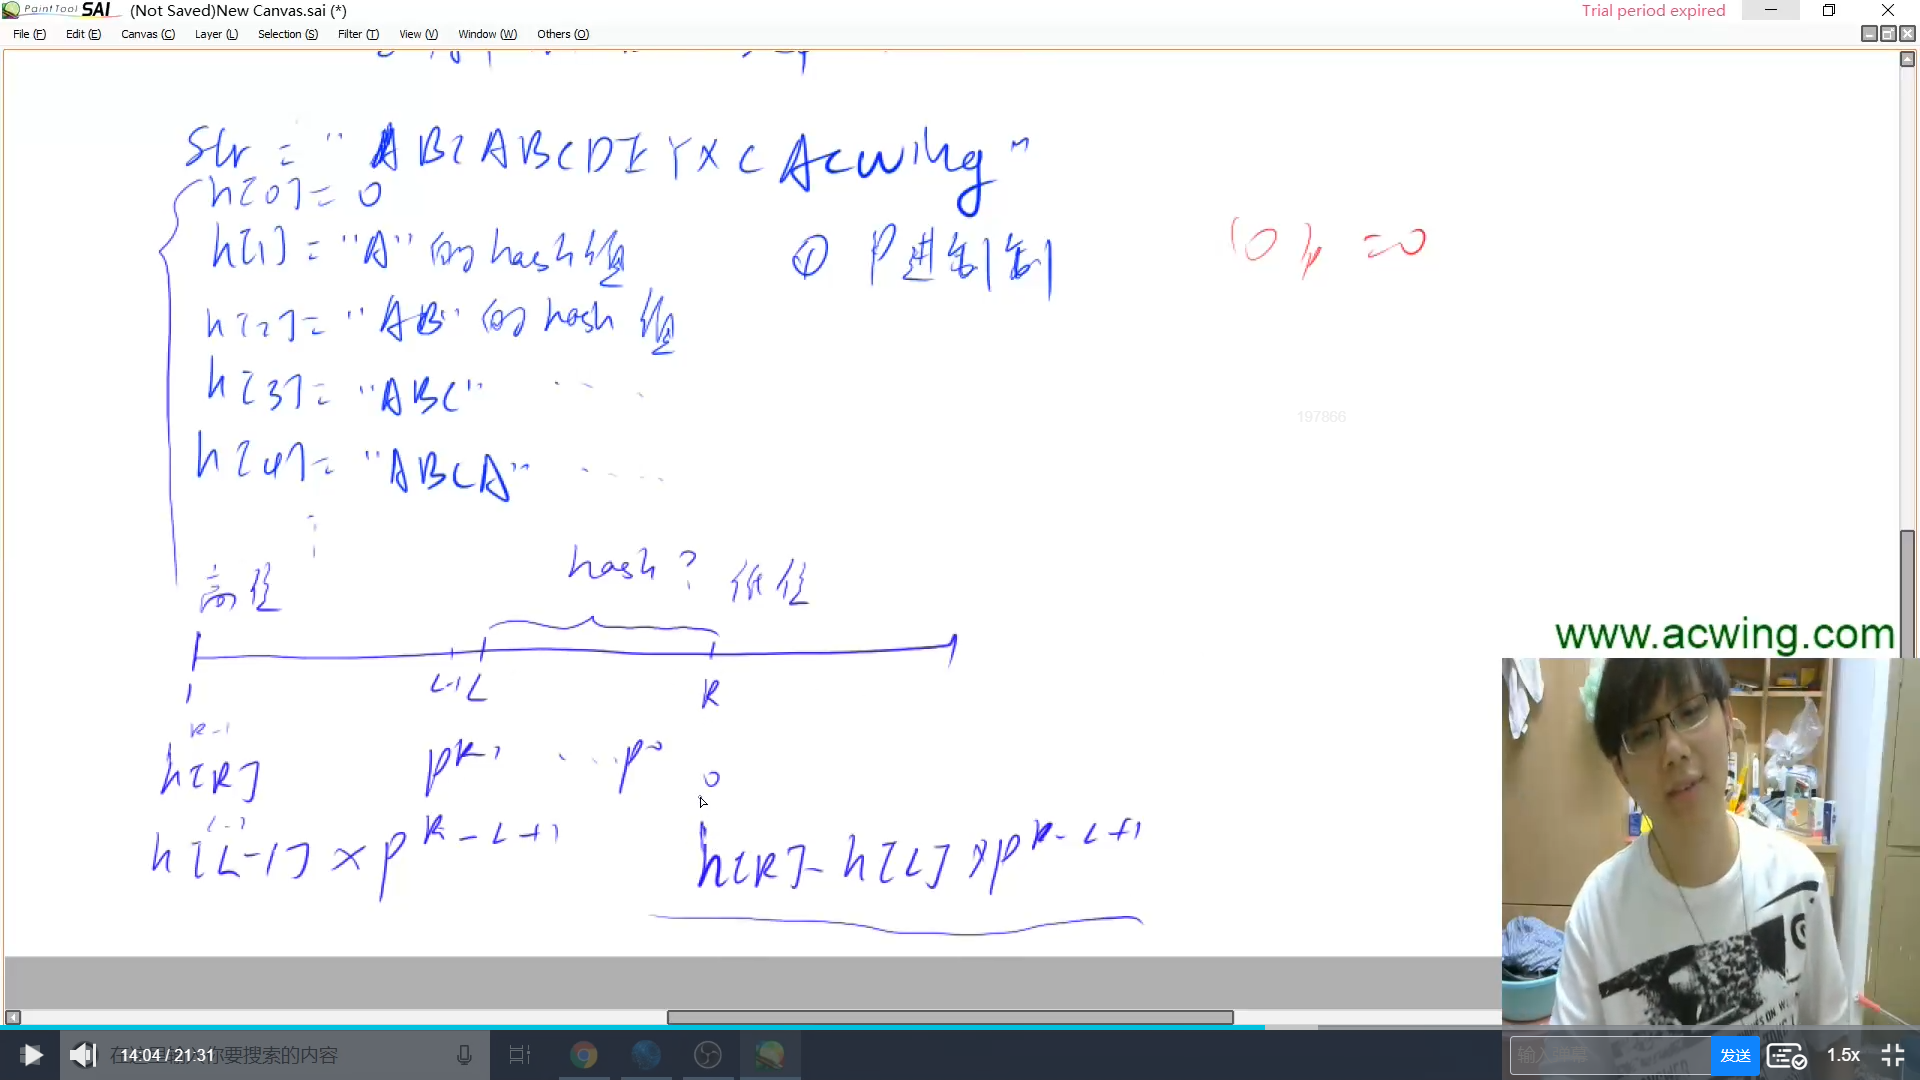 PaintTool SAI (Not Saved)New Canvas.sai (*) Trial period expired
File (F) Edit (E) Canvas (C) Layer (L) Selection (S) Filter (T) View (V) Window (W) Others (O)
Str = "ABCABCDEYXCAcwing"
h[0] = 0
h[1] = "A" 的 hash 值
① P进制制
(0)p = 0
h[2] = "AB" 的 hash 值
h[3] = "ABC" ...
197866
h[4] = "ABCA" ....
⋮
hash ?
高位 低位
www.acwing.com
1 L-1 L R
R-1
h[R] p^R-1 ...p^0 0
L-2
h[L-1] × p^R-L+1 h[R]- h[L] × p^R-L+1
14:04 / 21:31 在这里输入你要搜索的内容 输入弹幕 发送 1.5x